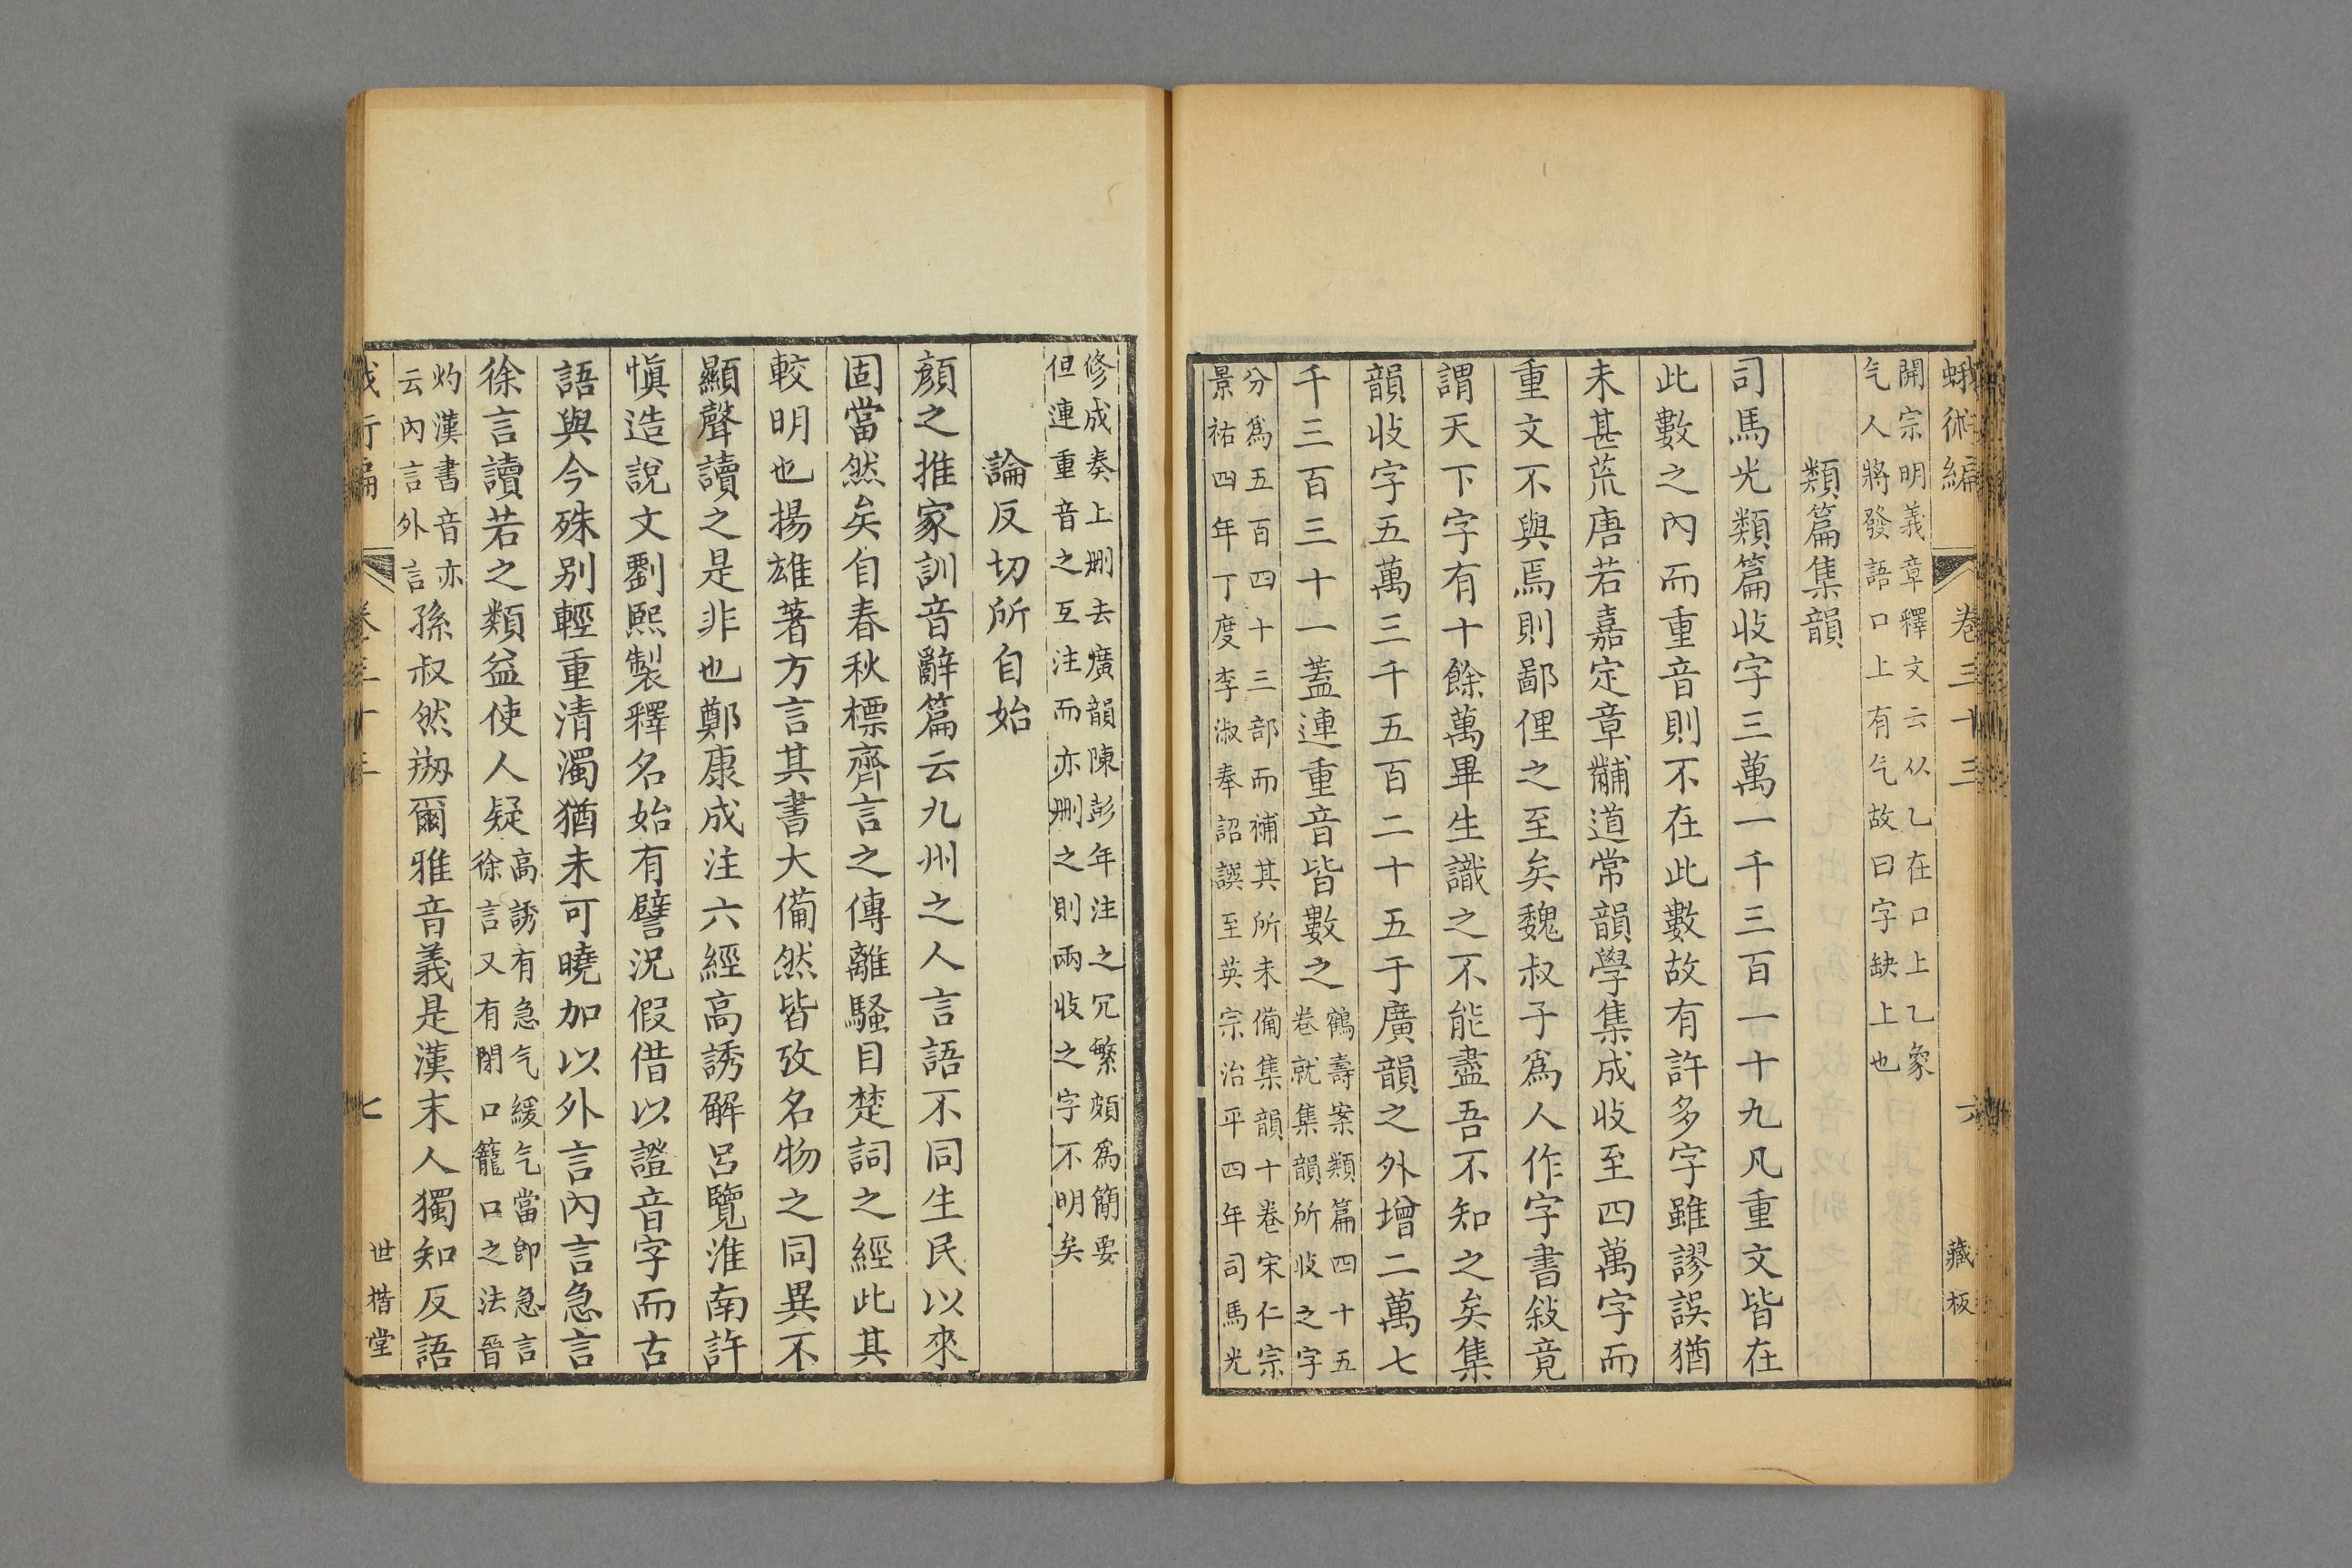 蛾術編 卷三十三 六 藏板
開宗明義章釋文云从乙在口上乙象
气人將發語口上有气故曰字缺上也
類篇集韻
司馬光類篇收字三萬一千三百一十九凡重文皆在
此數之內而重音則不在此數故有許多字雖謬誤猶
未甚荒唐若嘉定章黼道常韻學集成收至四萬字而
重文不與焉則鄙俚之至矣魏叔子爲人作字書敍竟
謂天下字有十餘萬畢生識之不能盡吾不知之矣集
韻收字五萬三千五百二十五于廣韻之外增二萬七
千三百三十一蓋連重音皆數之鶴壽案類篇四十五
卷就集韻所收之字
分爲五百四十三部而補其所未備集韻十卷宋仁宗
景祐四年丁度李淑奉詔譔至英宗治平四年司馬光
修成奏上刪去廣韻陳彭年注之冗繁頗爲簡要
但連重音之互注而亦刪之則兩收之字不明矣
論反切所自始
顏之推家訓音辭篇云九州之人言語不同生民以來
固當然矣自春秋標齊言之傳離騷目楚詞之經此其
較明也揚雄著方言其書大備然皆攷名物之同異不
顯聲讀之是非也鄭康成注六經高誘解呂覽淮南許
愼造說文劉熙製釋名始有譬況假借以證音字而古
語與今殊別輕重清濁猶未可曉加以外言內言急言
徐言讀若之類益使人疑高誘有急气緩气當卽急言
徐言又有閉口籠口之法晉
灼漢書音亦
云內言外言孫叔然剙爾雅音義是漢末人獨知反語
七 世楷堂